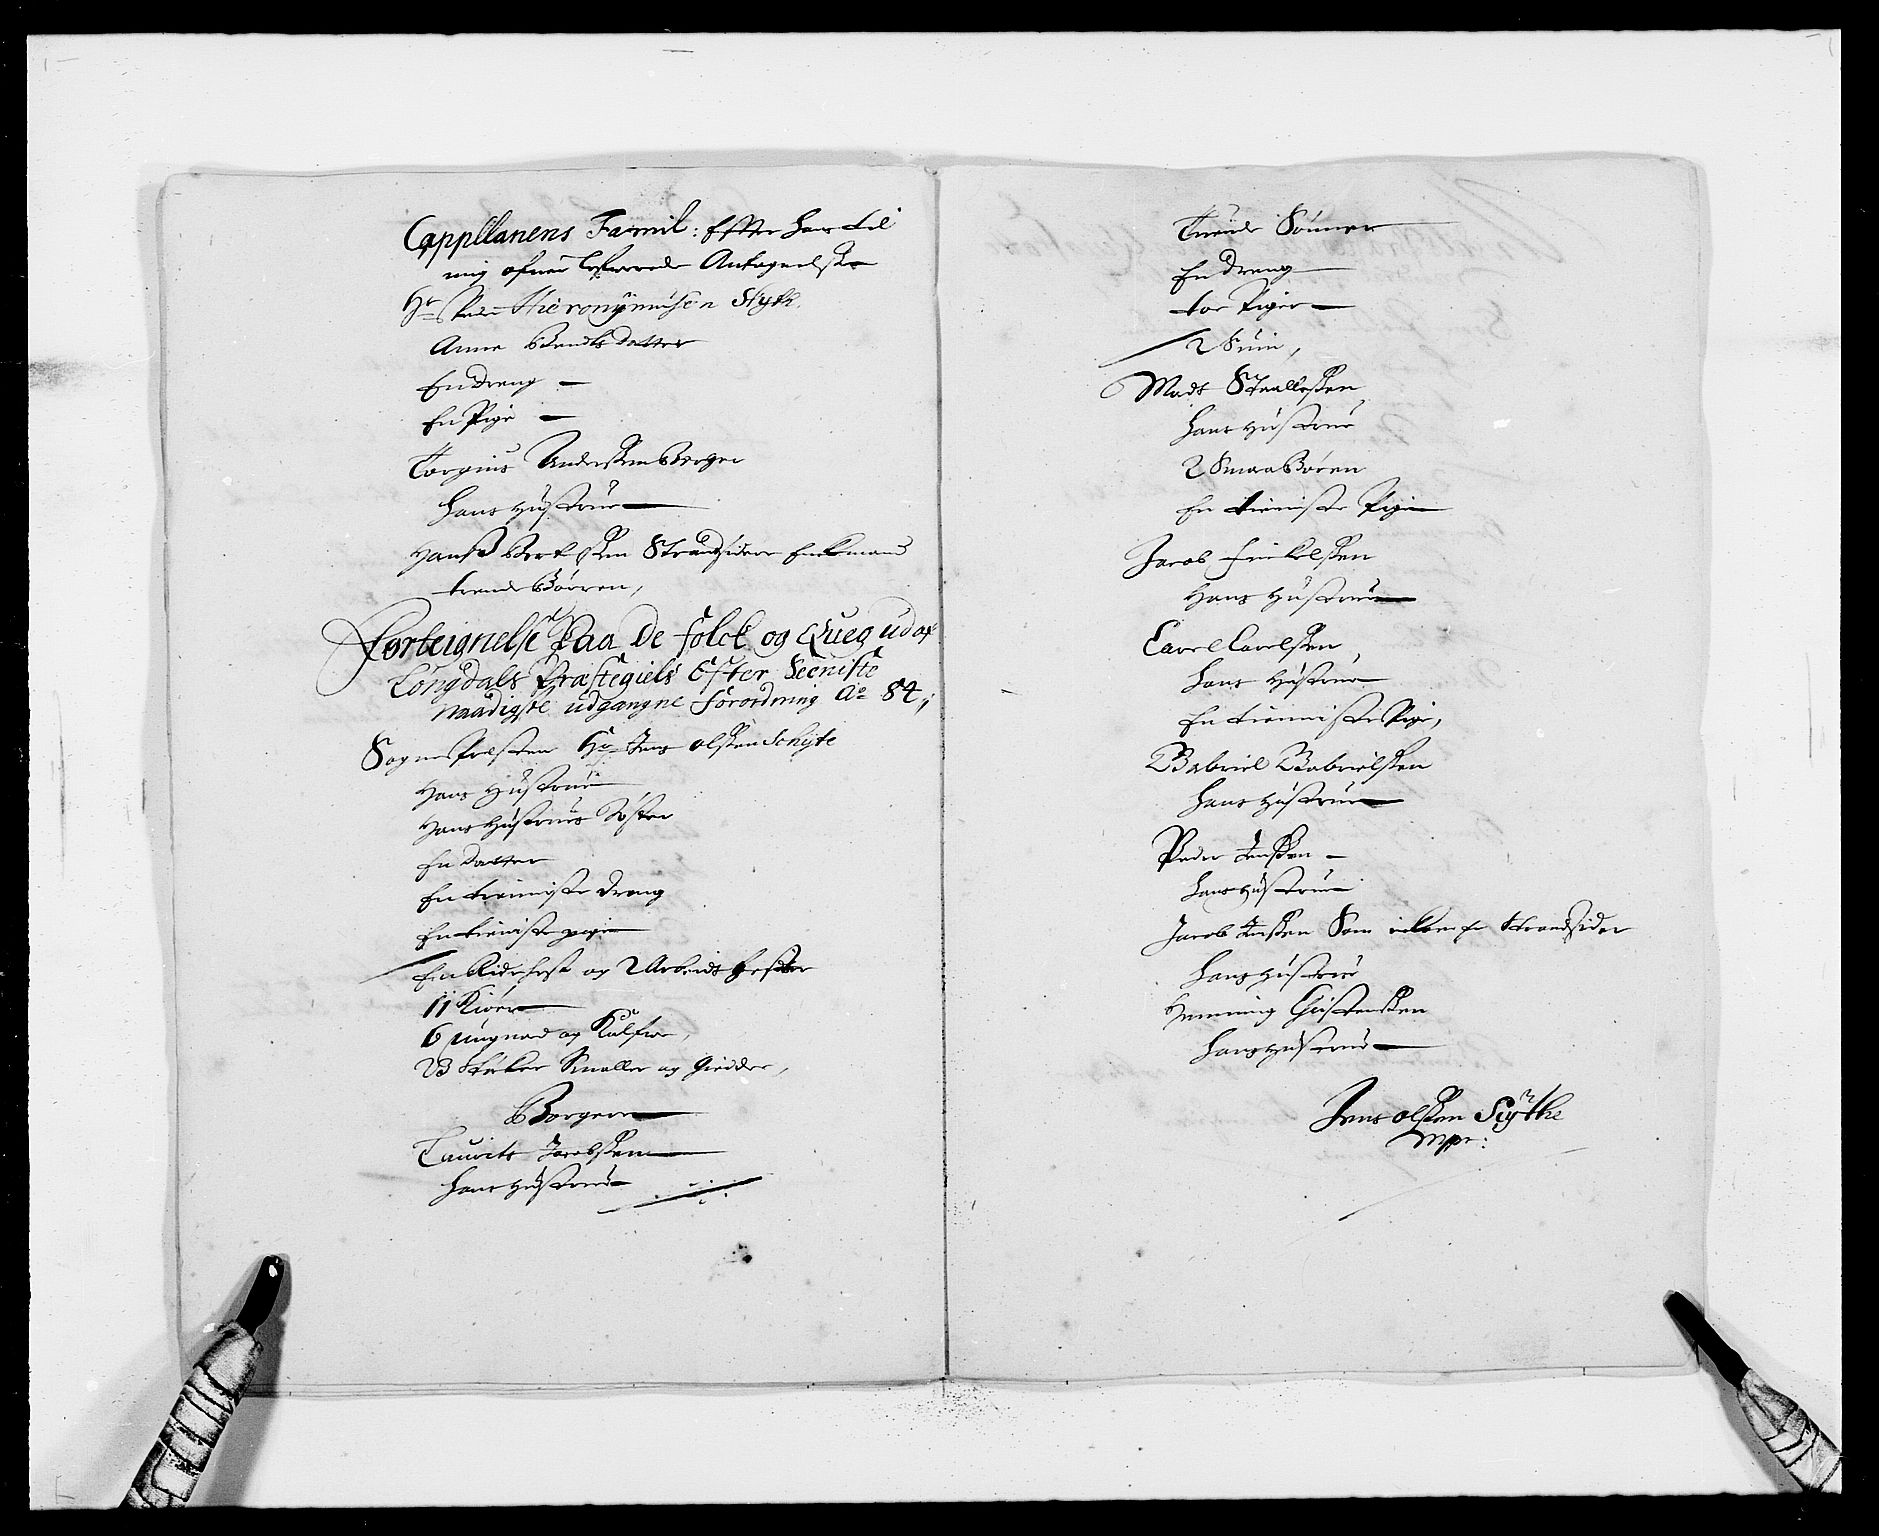 Cappllanens Famil: Effter hans til
mig ofuer lefuerede Antegnelsse
Hr Peder Hieronymusen Skytte
Anne Bendtsdatter
En dreng
En Pige
Torgius Anderssen Borger
hans Hustrue
Hanss Bertelssen Strandsidere Enckemand
trende Børren,
Forteignelse Paa De folck og Queg ud af
Longdals Præstegield Efter Seeniste
naadigste udgangne forordning Ao 84,
Sogne Presten Hr Jens olssen Schyte
Hans Hustrue
Hans Hustrues Søster
En Datter
En tieniste dreng
En tieniste pige
En Ridehest og 2 Arbeids hester
11 Kiøer
6 ungnød og Kalfue,
Støcker Smaller og Gieder,
Borgere
Laurits Jacobssen
hans Hustrue
Tuende Sønner
En dreng
toe Piger
2 Suin,
Mads Staallessen
hans Hustrue
2 Smaa Børen
En tieniste Pige
Jacob Enkelssen
Hans Hustrue
Carel Carelssen,
hans Hustrue
En tieniste Pige,
Gabriel Gabrielssen
hans Hustrue
Peder Jenssen
hans Hustrue
Jacob Jenssen Som icke er Strandsider
hans Hustrue
Henning Gustenssen
hans Hustrue
Jens olssen Schytte
Mpr: